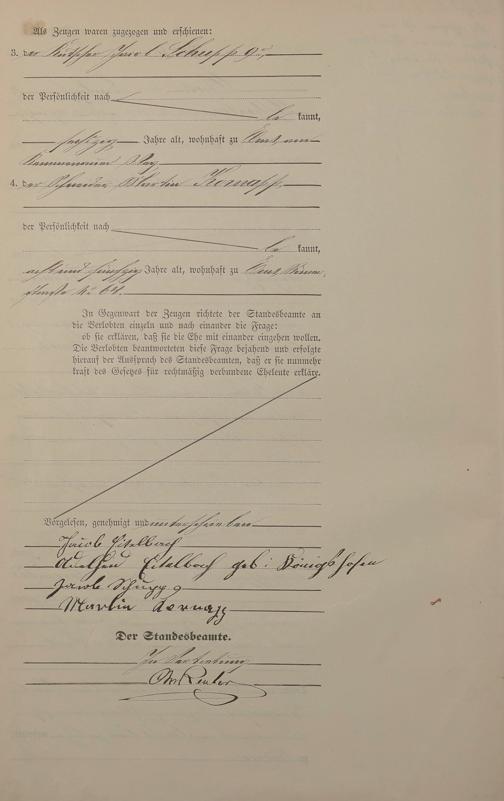 Als Zeugen waren zugezogen und erschienen:
3. der Kutscher Jacob Schupp
der Persönlichkeit nach
be kannt,
sechzig Jahre alt, wohnhaft zu Ems, am
4. der Schneider Martin
der Persönlichkeit nach
be kannt,
acht und fünfzig Jahre alt, wohnhaft zu Ems
64.
In Gegenwart der Zeugen richtete der Standesbeamte an
die Verlobten einzeln und nach einander die Frage:
ob sie erklären, daß sie die Ehe mit einander eingehen wollen.
Die Verlobten beantworteten diese Frage bejahend und erfolgte
hierauf der Ausspruch des Standesbeamten, daß er sie nunmehr
kraft des Gesetzes für rechtmäßig verbundene Eheleute erkläre.
Vorgelesen, genehmigt und unterschrieben
Jacob Eitelbach
Eitelbach geb: Königshofen
Jacob Schupp
Martin
Der Standesbeamte.
In Vertretung